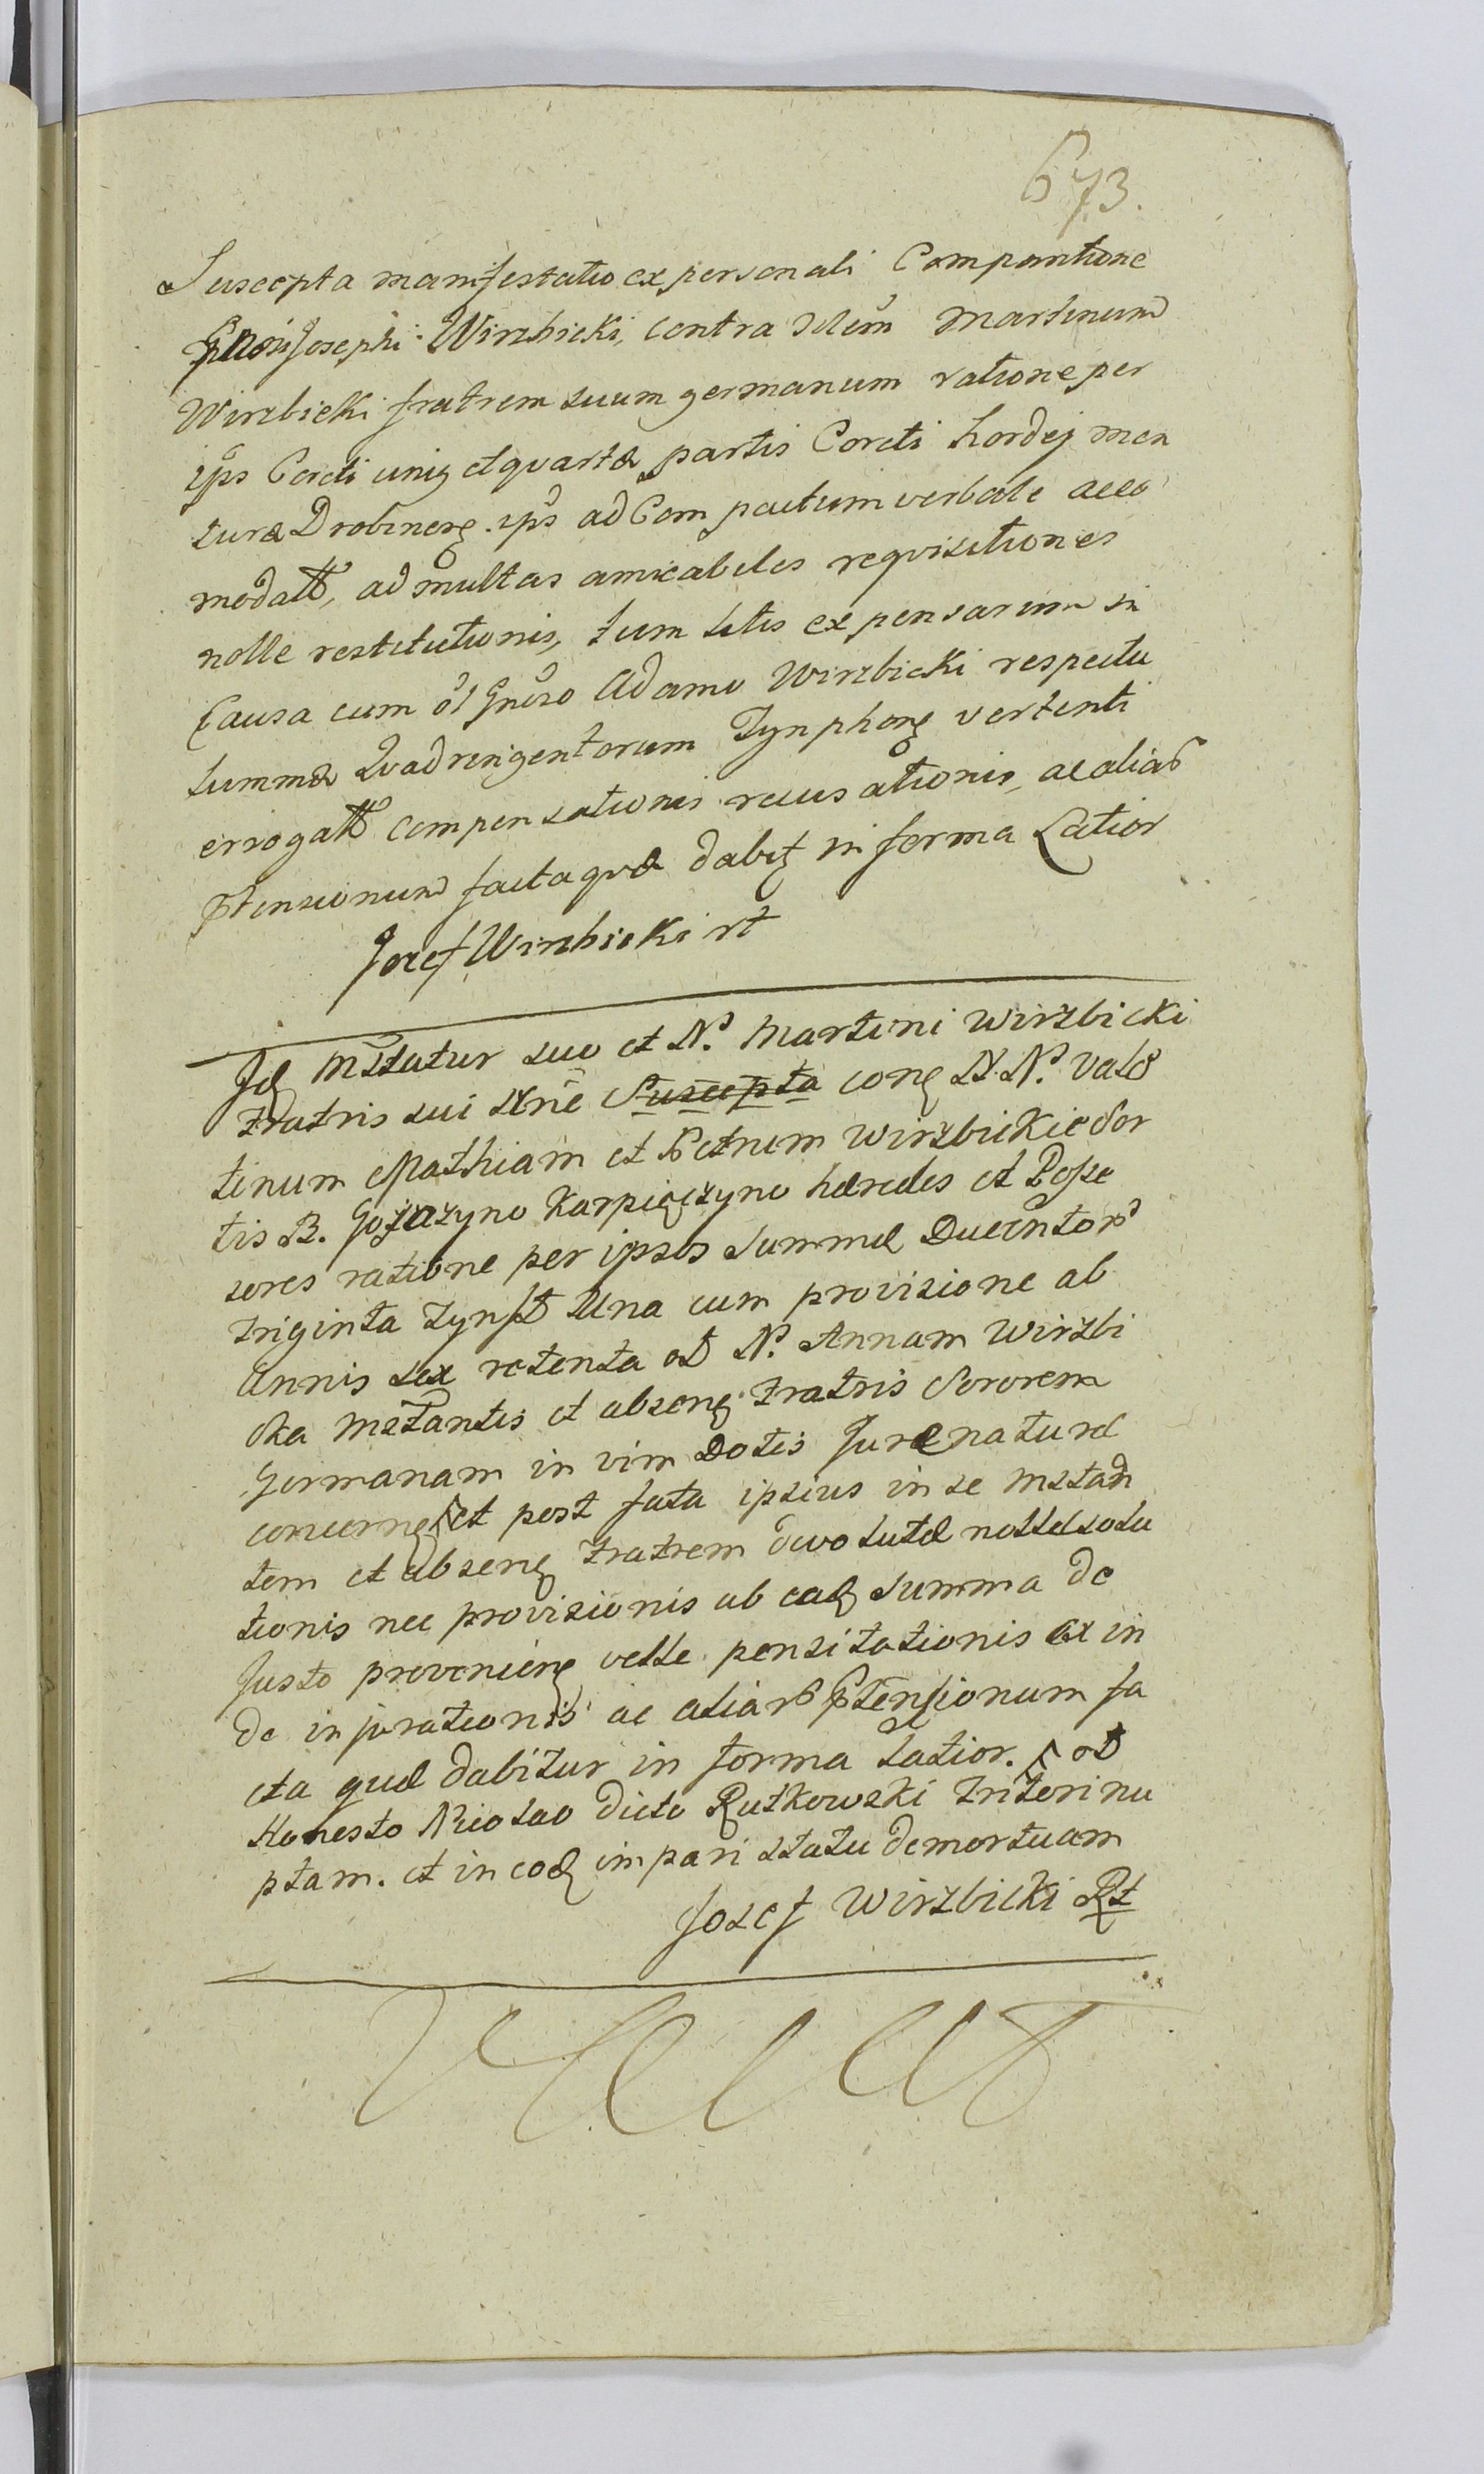 673.
Suscepta manifestatio ex personali Comparitione
Gnosi Josephi Wirzbicki, contra Nlem Martinum
Wirzbicki fratrem suum germanum ratione per
ips Coreti unig et quartæ partis Coreti hordej men
suræ Drobinens. ips ad Compactum verbale acco
modatt, ad multas amicabiles requisitiones
nolle restitutionis, tum litis expensarum in
Causa cum ol Gnoso Adamo Wirzbicki respectu
summæ Quadringentorum Tynphong vertenti
errogatt compensationis recusationis, ac aliar
ptensionum facta quæ dabit in forma Latior
Jozef Wirzbicki rt
Jd Instatur suo et N. Martini Wirzbicki
fratris sui Nne Suscepta cong N. N. Vale
tinum Mathiam et Petrum Wirzbickie Sor
tis B. Karpięczyno hæredes et Posse
sores ratione per ipsos Summæ Ducentor
triginta tynft Una cum provisione ab
Annis sex retenta ol N. Annam Wirzbi
cka Instantis et abseng fratris Sororem
Germanam in vim Dotis Juræ naturæ
concerng et post fata ipsius in se Instan
tem et abseng fratrem devolutæ nolle solu
tionis nec provisionis ab ead Summa de
Justo provenieng velle pensitationis ex in
de injurationis ac aliar ptensionum fa
cta quæ dabitur in forma Latior. ol
Honesto Nicolao dicto Rutkowski
ptam. et in eod impari statu demortuam
Jozef Wirzbicki Rt